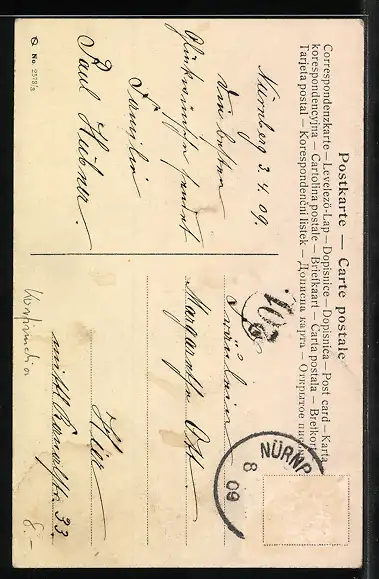 Postkarte — Carte postale
Correspondenzkarte — Levelező-Lap — Dopisnice — Dopisnica — Post card — Karta
korespondencyjna — Cartolina postale — Briefkaart — Carta postala — Brefkort
Tarjeta postal — Korespondenční listek — Дописна карта — Открытое
Nürnberg 3.4.09.
Die besten
Glückwünsche sendet
Familie
Paul Hübner.
No. 2578/3
Fräulein
Margarethe Ott
Hier
33
NÜRNB
8
09
8.-